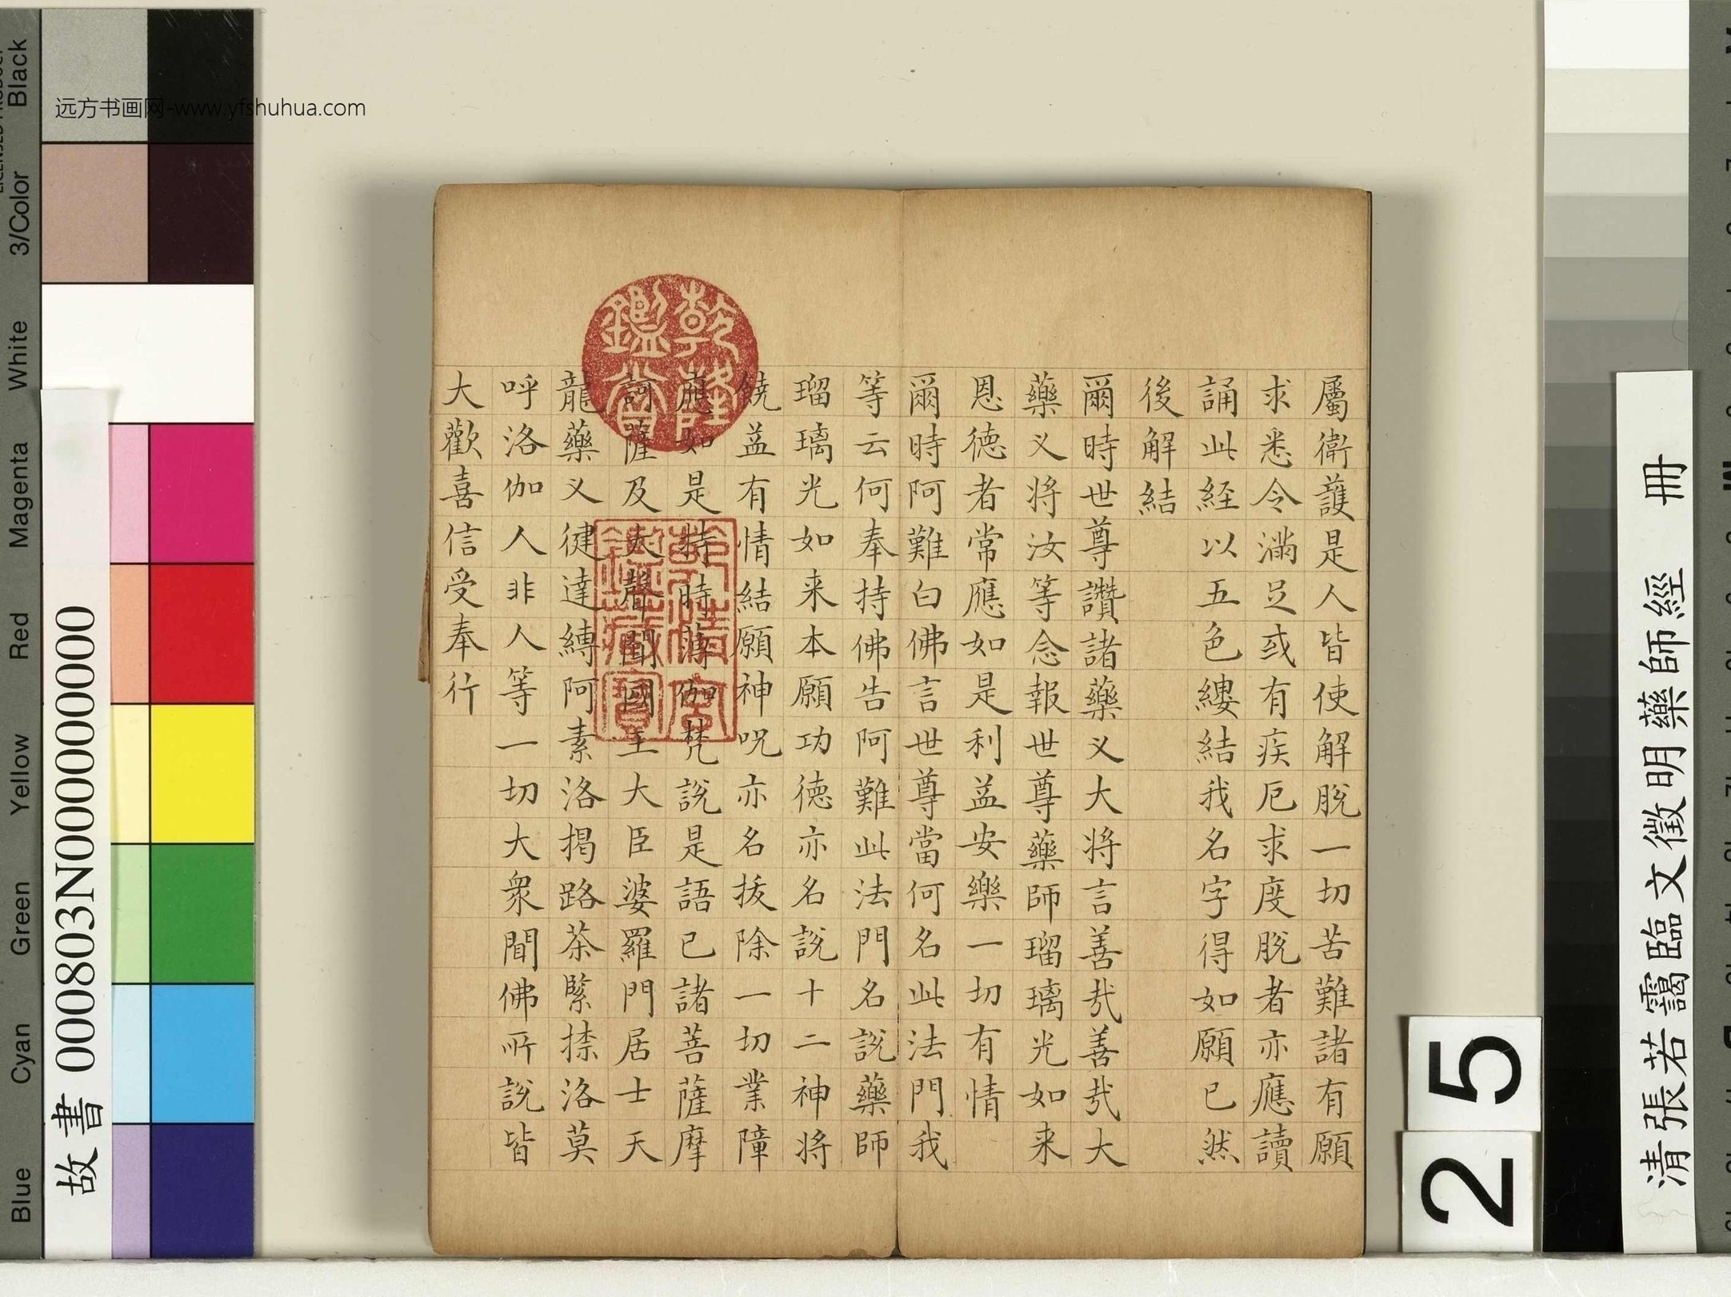 屬衛護是人皆使解脫一切苦難諸有願
求悉令滿足或有疾厄求度脫者亦應讀
誦此経以五色縷結我名字得如願已然
後解結
爾時世尊讚諸藥义大将言善㢤善㢤大
藥义将汝等念報世尊藥師瑠璃光如来
恩徳者常應如是利益安樂一切有情
爾時阿難白佛言世尊當何名此法門我
等云何奉持佛告阿難此法門名說藥師
瑠璃光如来本願功徳亦名說十二神将
饒益有情結願神呪亦名拔除一切業障
應如是持時薄伽梵說是語已諸菩薩摩
訶薩及大聲聞國王大臣婆羅門居士天
龍藥义健達縛阿素洛揭路荼緊捺洛莫
呼洛伽人非人等一切大衆聞佛所說皆
大歡喜信受奉行
乾隆
鑑賞
乾清宮
鑑藏寶
清張若靄臨文徵明藥師經 冊
25
故書 000803N000000000
远方书画网-www.yfshuhua.com
Black
3/Color
White
Magenta
Red
Yellow
Green
Cyan
Blue